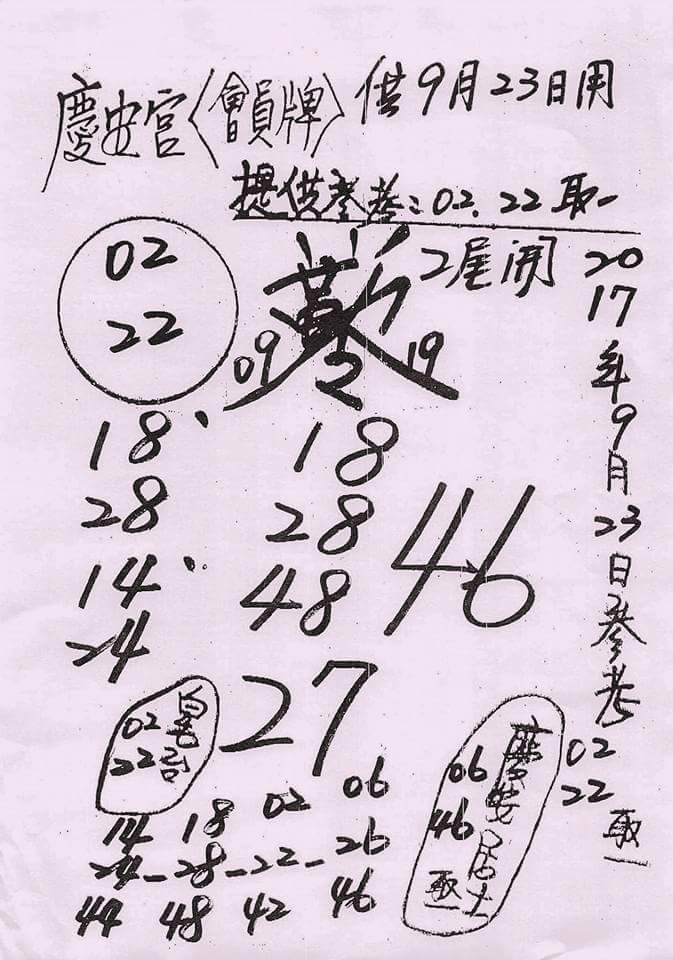 慶安宮〈會員牌〉供9月23日用
提供參考:02.22取一
2尾開
02
22
09
19
18、
28
14、
24
18
28
48
46
2017年9月23日參考
02
22
取一
27
02
22
06
46
取一
居士
14 18 02 06
24-28-22-26
44 48 42 46